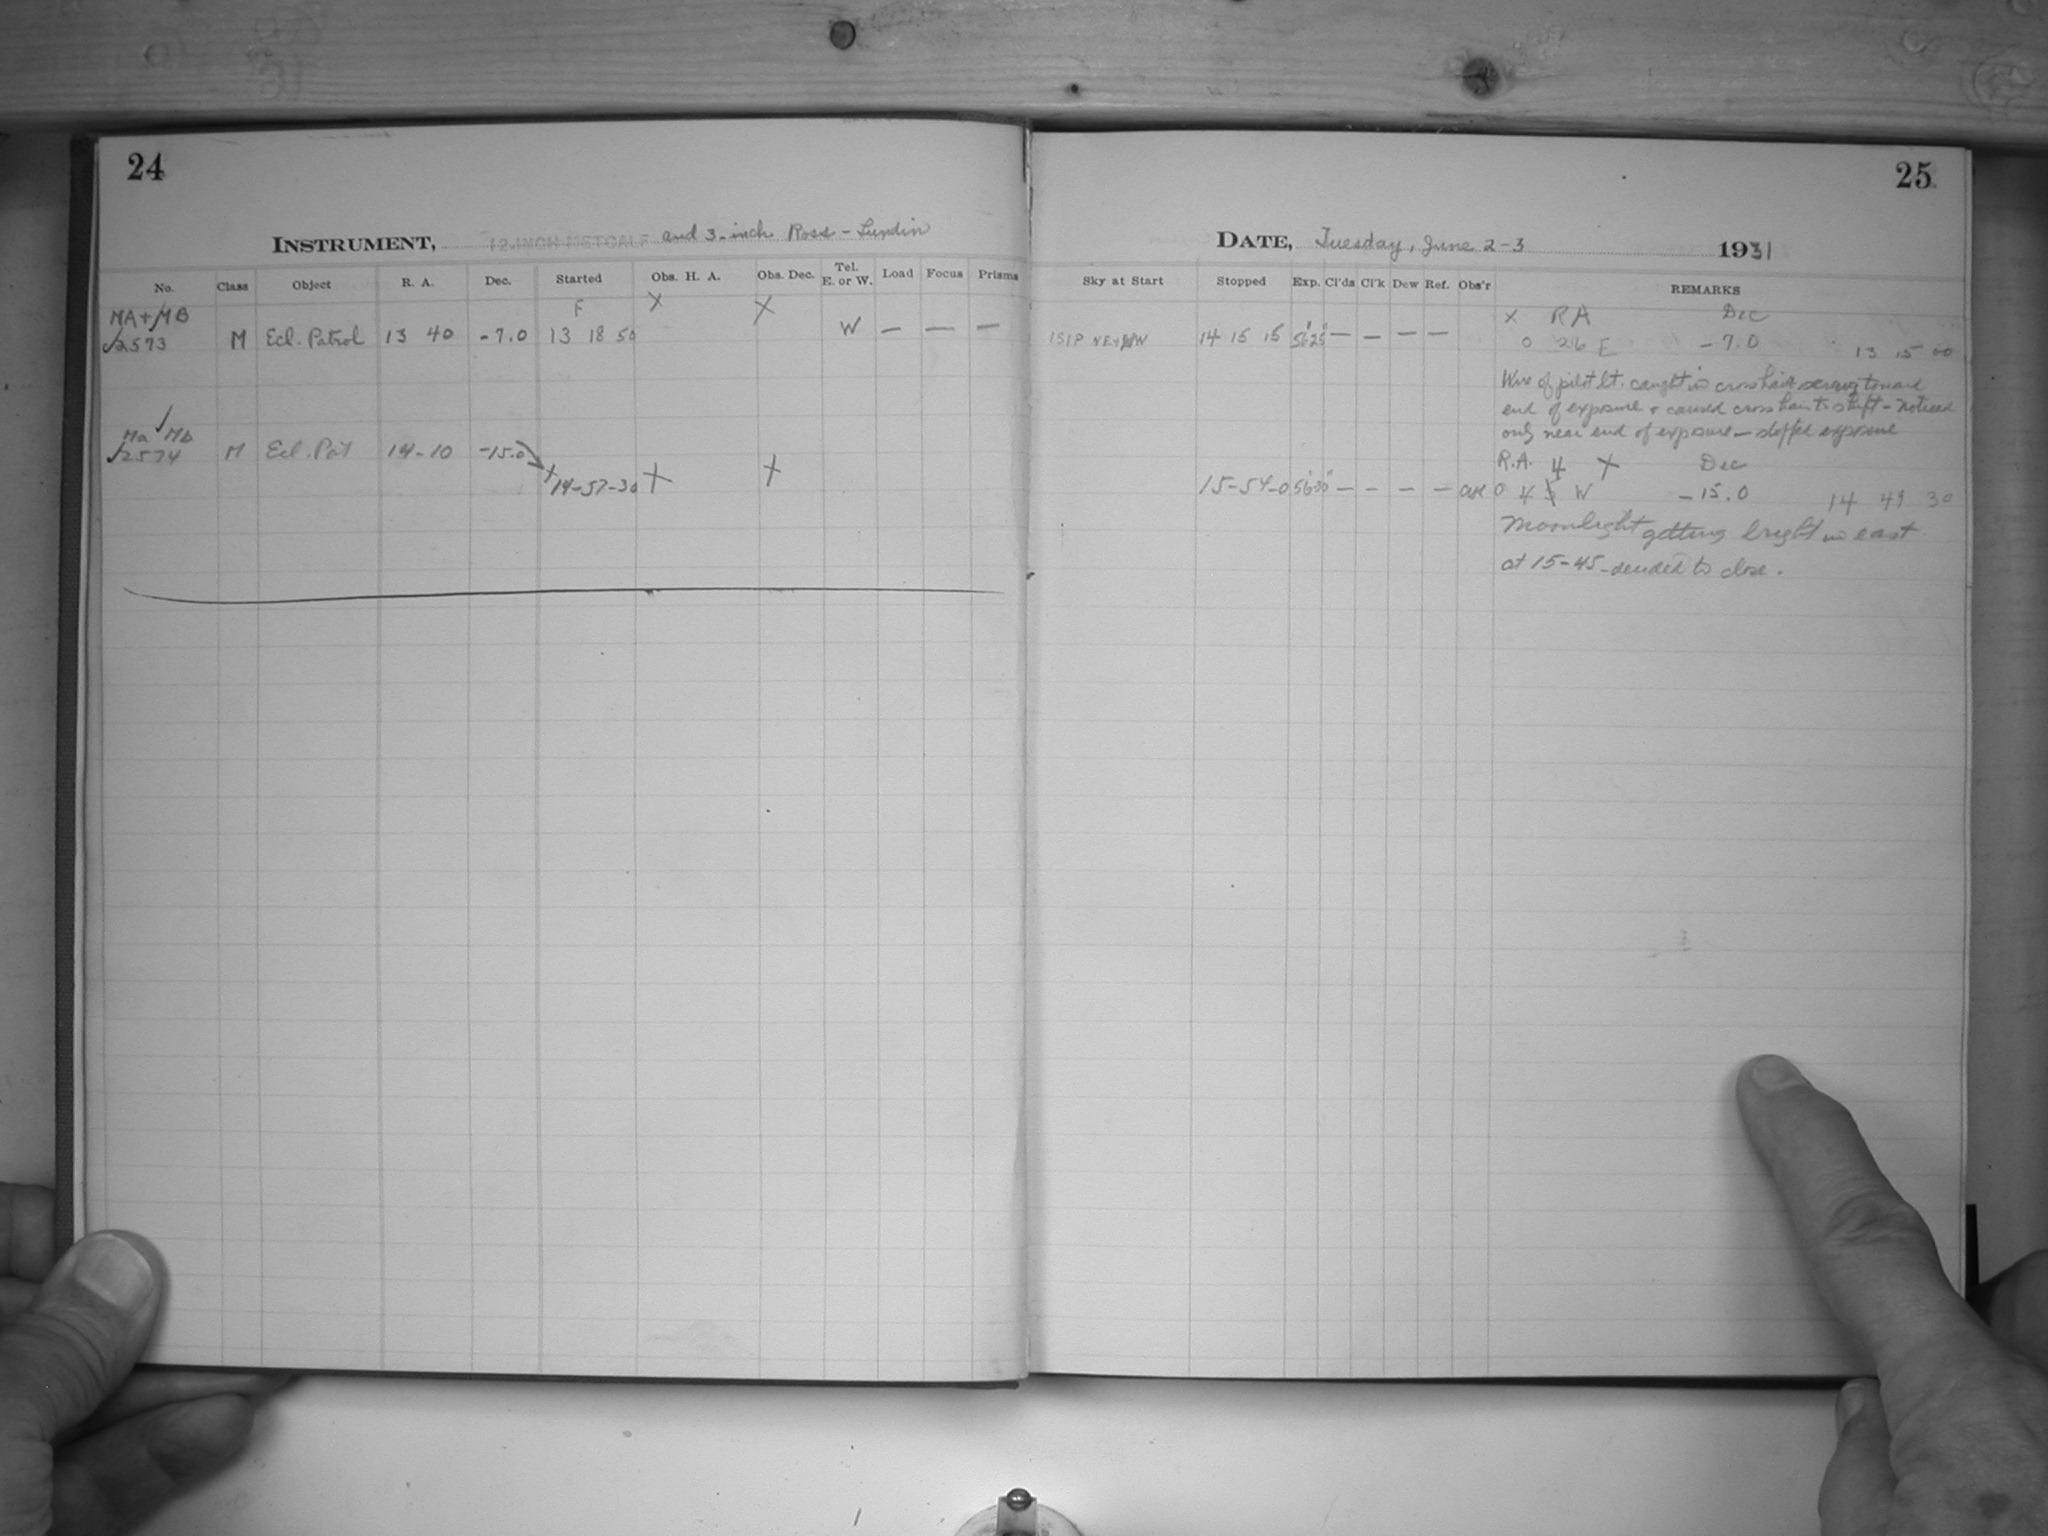 24
INSTRUMENT, 12-INCH METCALF and 3-inch Ross-Lundin
No. Class Object R. A. Dec. Started Obs. H. A. Obs. Dec. Tel. E. or W. Load Focus Prisms
MA+MB F X X
√2573 M Ecl. Patrol 13 40 -7.0 13 18 50 W — — —
Ma √ Mb
√2574 M Ecl. Pat 14-10 -15.0
X 14-57-30 X X
25
DATE, Tuesday, June 2-3 1931
Sky at Start Stopped Exp. Cl'ds Cl'k Dew Ref. Obs'r REMARKS
X RA Dec
14 15 15 56 25 — — — — 0 26 E -7.0 13 15 00
Wire of pilot lt. caught in cross hair screw toward
end of exposure & caused cross hair to shift - noticed
only near end of exposure — stopped exposure
R.A. 4 X Dec
15-54-0 56 30 — — — — 0 4 W -15.0 14 49 30
Moonlight getting bright in east
at 15-45 - decided to close.